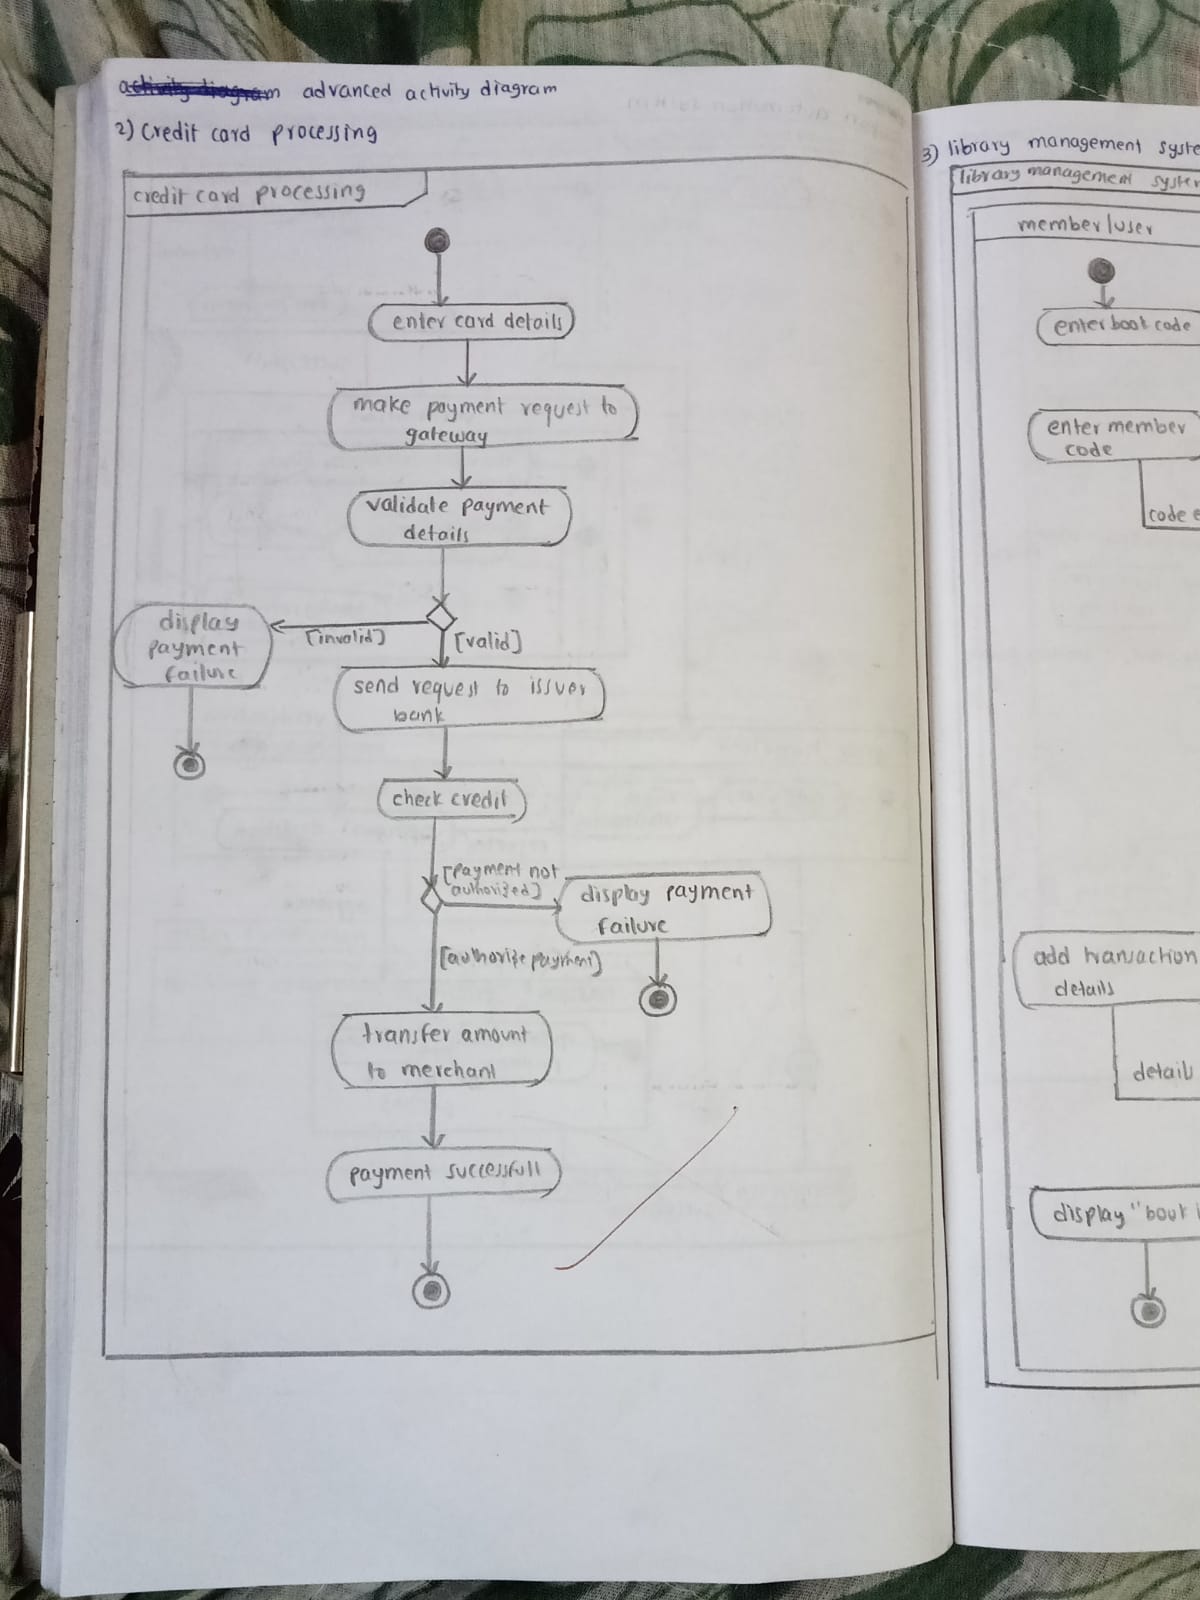 advanced activity diagram
2) credit card processing
credit card processing
enter card details
make payment request to
gateway
validate payment
details
display
payment
failure
[invalid]
[valid]
send request to issuer
bank
check credit
[payment not
authorized]
display payment
failure
[authorize payment]
transfer amount
to merchant
payment successfull
3) library management syste
library management system
member/user
enter book code
enter member
code
code e
add transaction
details
detail
display "book i